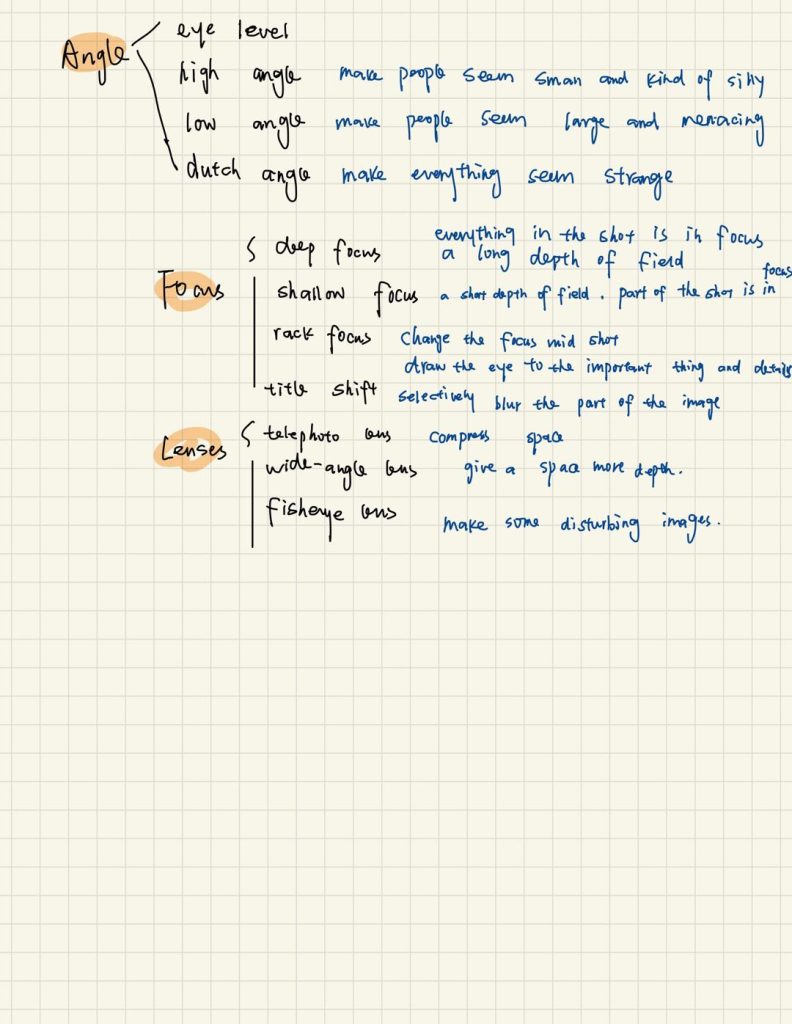 Angle
eye level
high angle make people seem small and kind of silly
low angle make people seem large and menacing
dutch angle make everything seem strange
Focus
deep focus everything in the shot is in focus
a long depth of field
shallow focus a short depth of field. part of the shot is in focus
rack focus change the focus mid shot
draw the eye to the important thing and details
title shift selectively blur the part of the image
Lenses
telephoto lens compress space
wide-angle lens give a space more depth.
fisheye lens make some disturbing images.